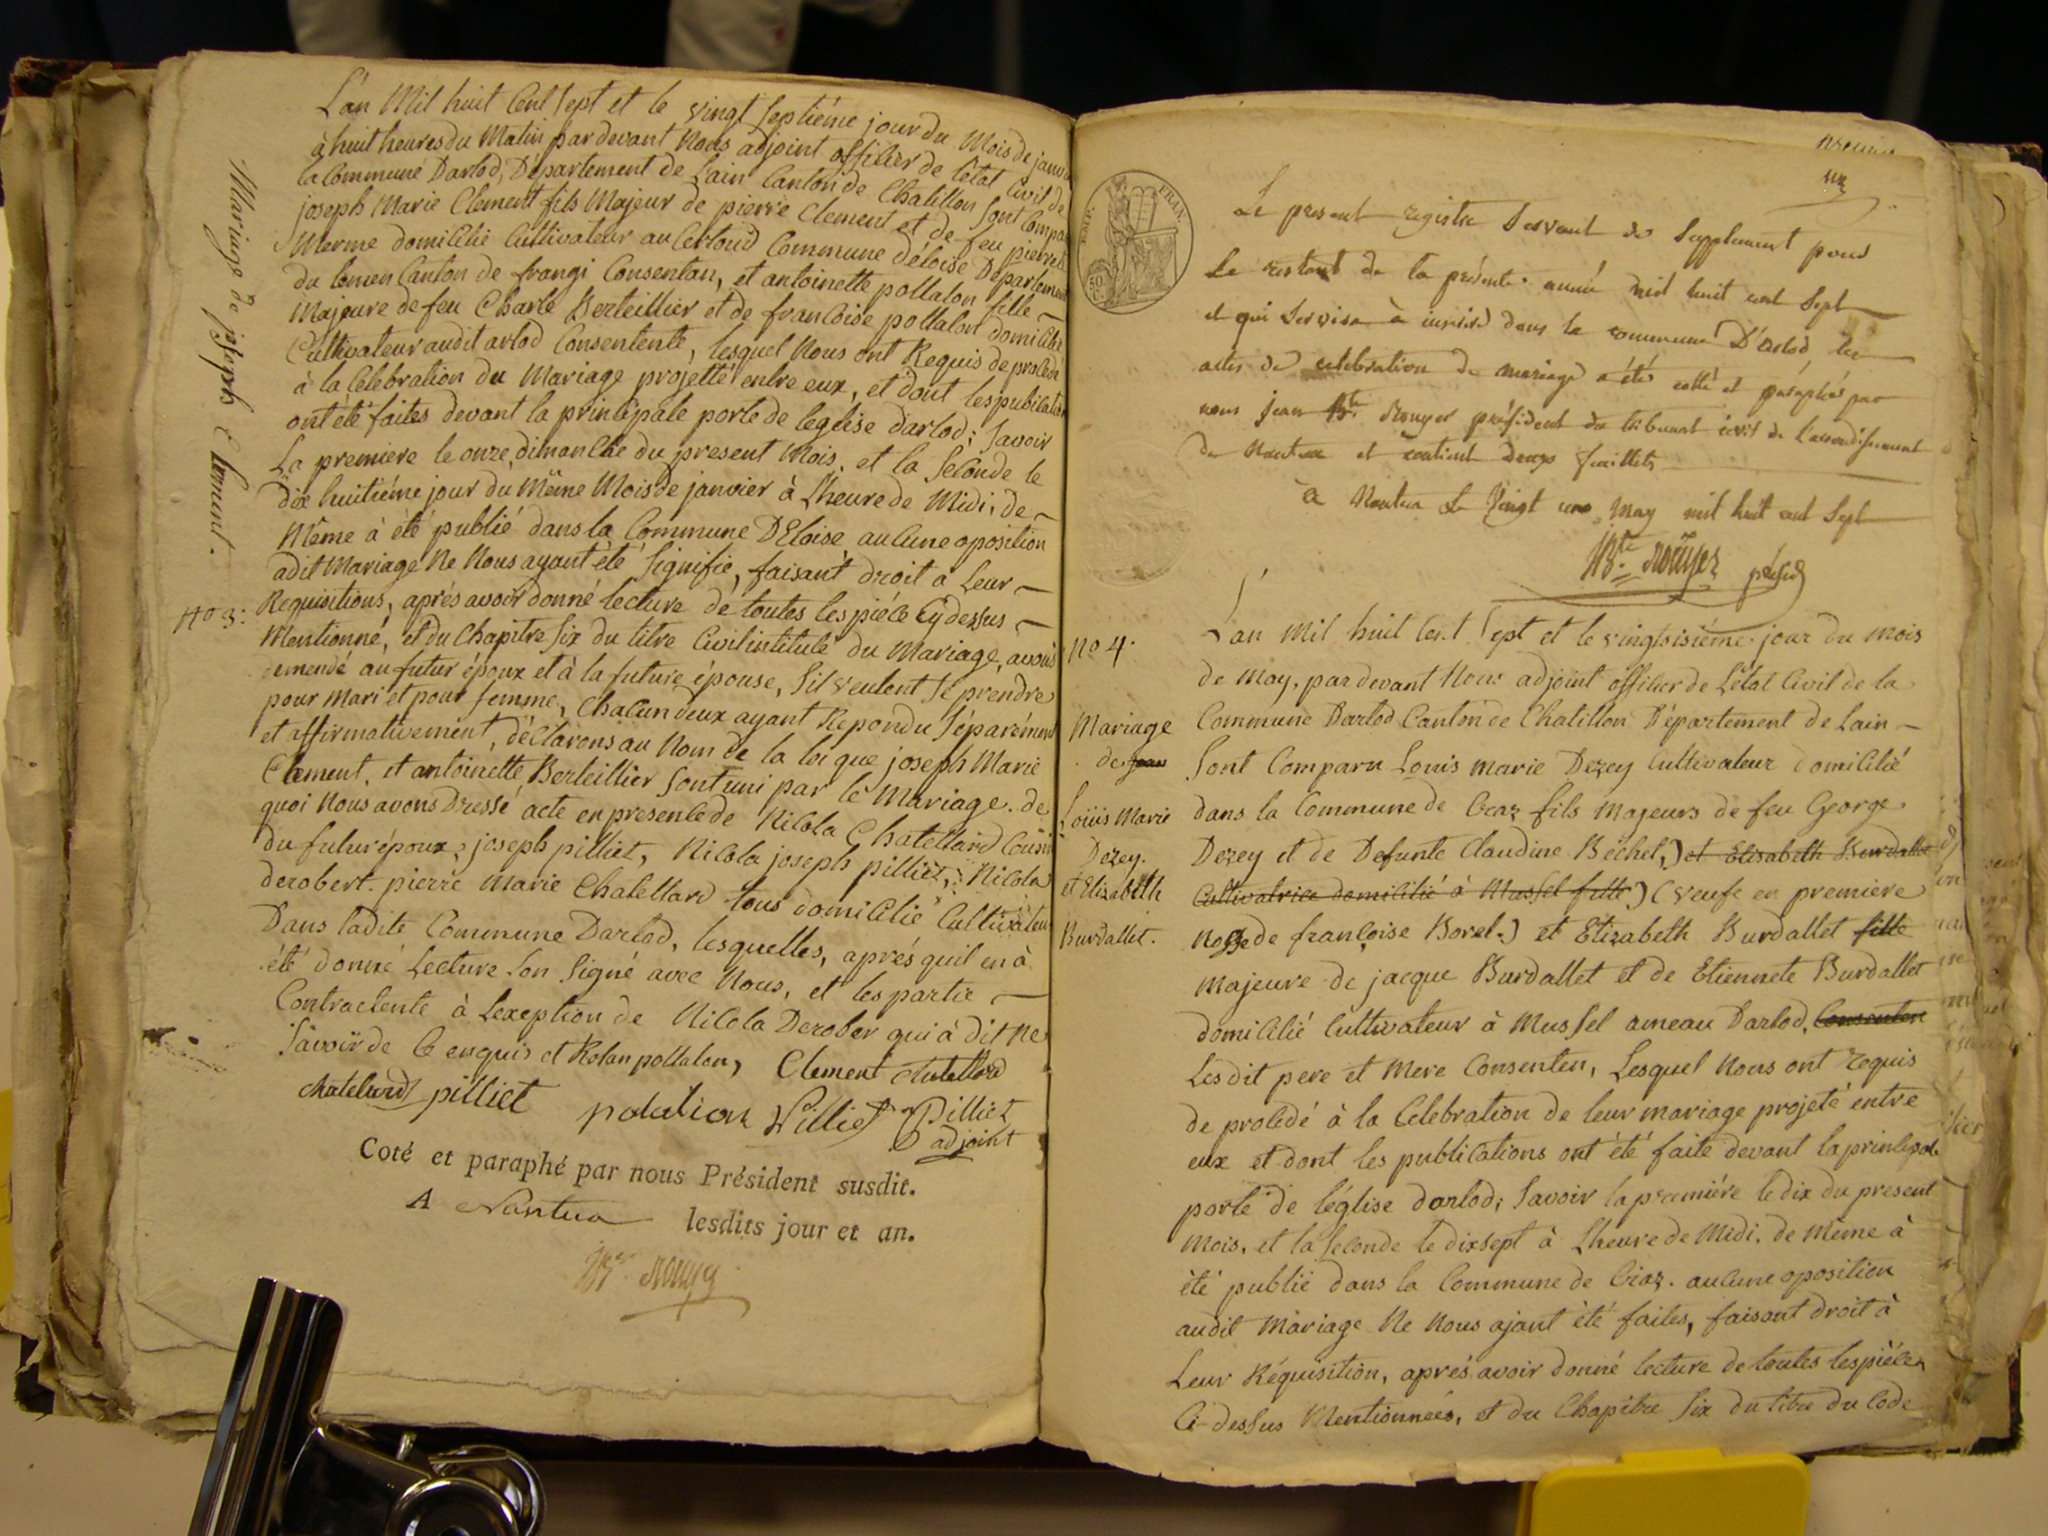 L'an Mil huit Cent Sept et le vingt Septiéme jour du Mois de janv
à huit heures du Matin par devant Nous adjoint offilier de l'état Civil de
la Commune Darlod, Département de Lain Canton de Chatillon Sont Compa
joseph Marie Clement fils Majeur de pierre Clement et de feu pierret
Merme domicilié Cultivateur au Commune déloise Département
du lemen Canton de frangi Consentan, et antoinette pollalon fille
Majeure de feu Charle Berteillier et de francoise pollalon domicilié
Cultivateur audit arlod Consentente, lesquel Nous ont Requis de procédé
à la Célébration du Mariage projetté entre eux, et dont les publicatio
ont été faites devant la principale porte de leglise darlod; Savoir
La premiere le onze dimanche du present Mois, et la Seconde le
dix huitiéme jour du Même Mois de janvier à Lheure de Midi, de
Même à été publié dans la Commune DEloise aucune oposition
adit Mariage Ne Nous ayant été Signifié, faisant droit a Leur
Requisitions, aprés avoir donné lecture de toutes les piéce Cy dessus
Mentionné, et du Chapitre Six du titre Civil intitulé du Mariage, avons
demendé au futur époux et à la future épouse, Sil veulent Se prendre
pour Mari et pour femme, Chacun deux ayant Repondu Séparément
et affirmativement, déclarons au Nom de la loi que joseph Marie
Clement, et antoinette Berteillier Sont uni par le Mariage. de
quoi Nous avons Dressé acte en presence de Nicola Chatellard Cousin
du futur époux, joseph pilliet, Nicola joseph pilliet, Nicola
derobert. pierre Marie Chatellard tous domicilié Cultivateur
Dans ladite Commune Darlod, lesquelles, aprés quil en à
été donné Lecture Son Signé avec Nous, et les partie
Contractente à Lexeption de Nicola Derober qui à dit Ne
Savoir de Ce enquis et Rolan pollalon, Clement Chatellard
Chatelard pilliet polalion Pilliet Pilliet
adjoint
Coté et paraphé par nous Président susdit.
A Nantua lesdits jour et an.
Bte. Rouyer
Mariage de joseph Clement.
No 3:
EMP. FRAN.
50 C.
Le present registre Servant de Supplement pour
Le restant de la présente année mil huit cent Sept
et qui Servira à inscire dans la commune D'arlod les
actes de celebration de mariage a été cotté et paraphé par
nous jean Bte. Rouyer président du tribunal civil de l'arrondissement
de Nantua et contient deux feuillets
a Nantua Le Vingt un May mil huit cent Sept
Bte. Rouyer présid
No 4.
Mariage
de jean
Loüis Marie
Dezey.
et Elizabeth
Burdallet.
L'an Mil huit Cent Sept et le vingtsisiéme jour du mois
de May, par devant Nous adjoint offilier de L'état Civil de la
Commune Darlod Canton de Chatillon Département de Lain
Sont Comparu Louis marie Dezey Cultivateur domicilié
dans la Commune de Craz fils Majeurs de feu George
Dezey et de Defunte Claudine Béchet,) et Elisabeth Burdallet
Cultivatrice domicilié à Mussel fille) (veufe en premiere
Nosse de françoise Borel.) et Elizabeth Burdallet fille
Majeure de jacque Burdallet et de Etiennete Burdallet
domicilié Cultivateur à Mussel ameau Darlod, Consenten
Lesdit pere et Mere Consenten, Lesquel Nous ont requis
de procédé à la Célébration de leur mariage projeté entre
eux et dont les publications ont été faite devant la principale
porte de léglise darlod; Savoir la premiére le dix du present
Mois, et la Seconde le dixsept à Lheure de Midi. de Même à
été publié dans la Commune de Craz. aucune oposition
audit Mariage Ne Nous ajant été faites, faisant droit à
Leur Réquisition, aprés avoir donné lecture de toutes les piéces
Ci-dessus Mentionnées, et du Chapitre Six du titre du Code